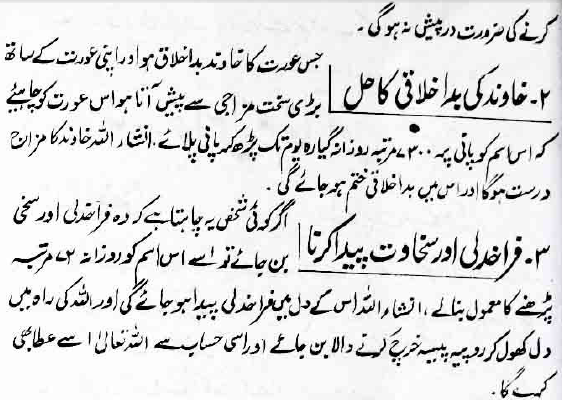 کرنے کی ضرورت درپیش نہ ہوگی۔
۲۔ خاوند کی بداخلاقی کا حل
جس عورت کا خاوند بداخلاق ہو اور اپنی عورت کے ساتھ
بڑی سخت مزاجی سے پیش آتا ہو اس عورت کو چاہیئے
کہ اس اسم کو پانی پر ۷۳۰۰ مرتبہ روزانہ گیارہ یوم تک پڑھ کر پانی پلائے۔ انشاء اللہ خاوند کا مزاج
درست ہوگا اور اس میں بداخلاقی ختم ہو جائے گی۔
۳۔ فراخدلی اور سخاوت پیدا کرنا
اگر کوئی شخص یہ چاہتا ہے کہ وہ فراخدلی اور سخی
بن جائے تو اسے اس اسم کو روزانہ ۷۲ مرتبہ
پڑھنے کا معمول بنالے، انشاء اللہ اس کے دل میں فراخدلی پیدا ہو جائے گی اور اللہ کی راہ میں
دل کھول کر روپیہ پیسہ خرچ کرنے والا بن جائے اور اسی حساب سے اللہ تعالیٰ اسے عطا بھی
کرے گا۔